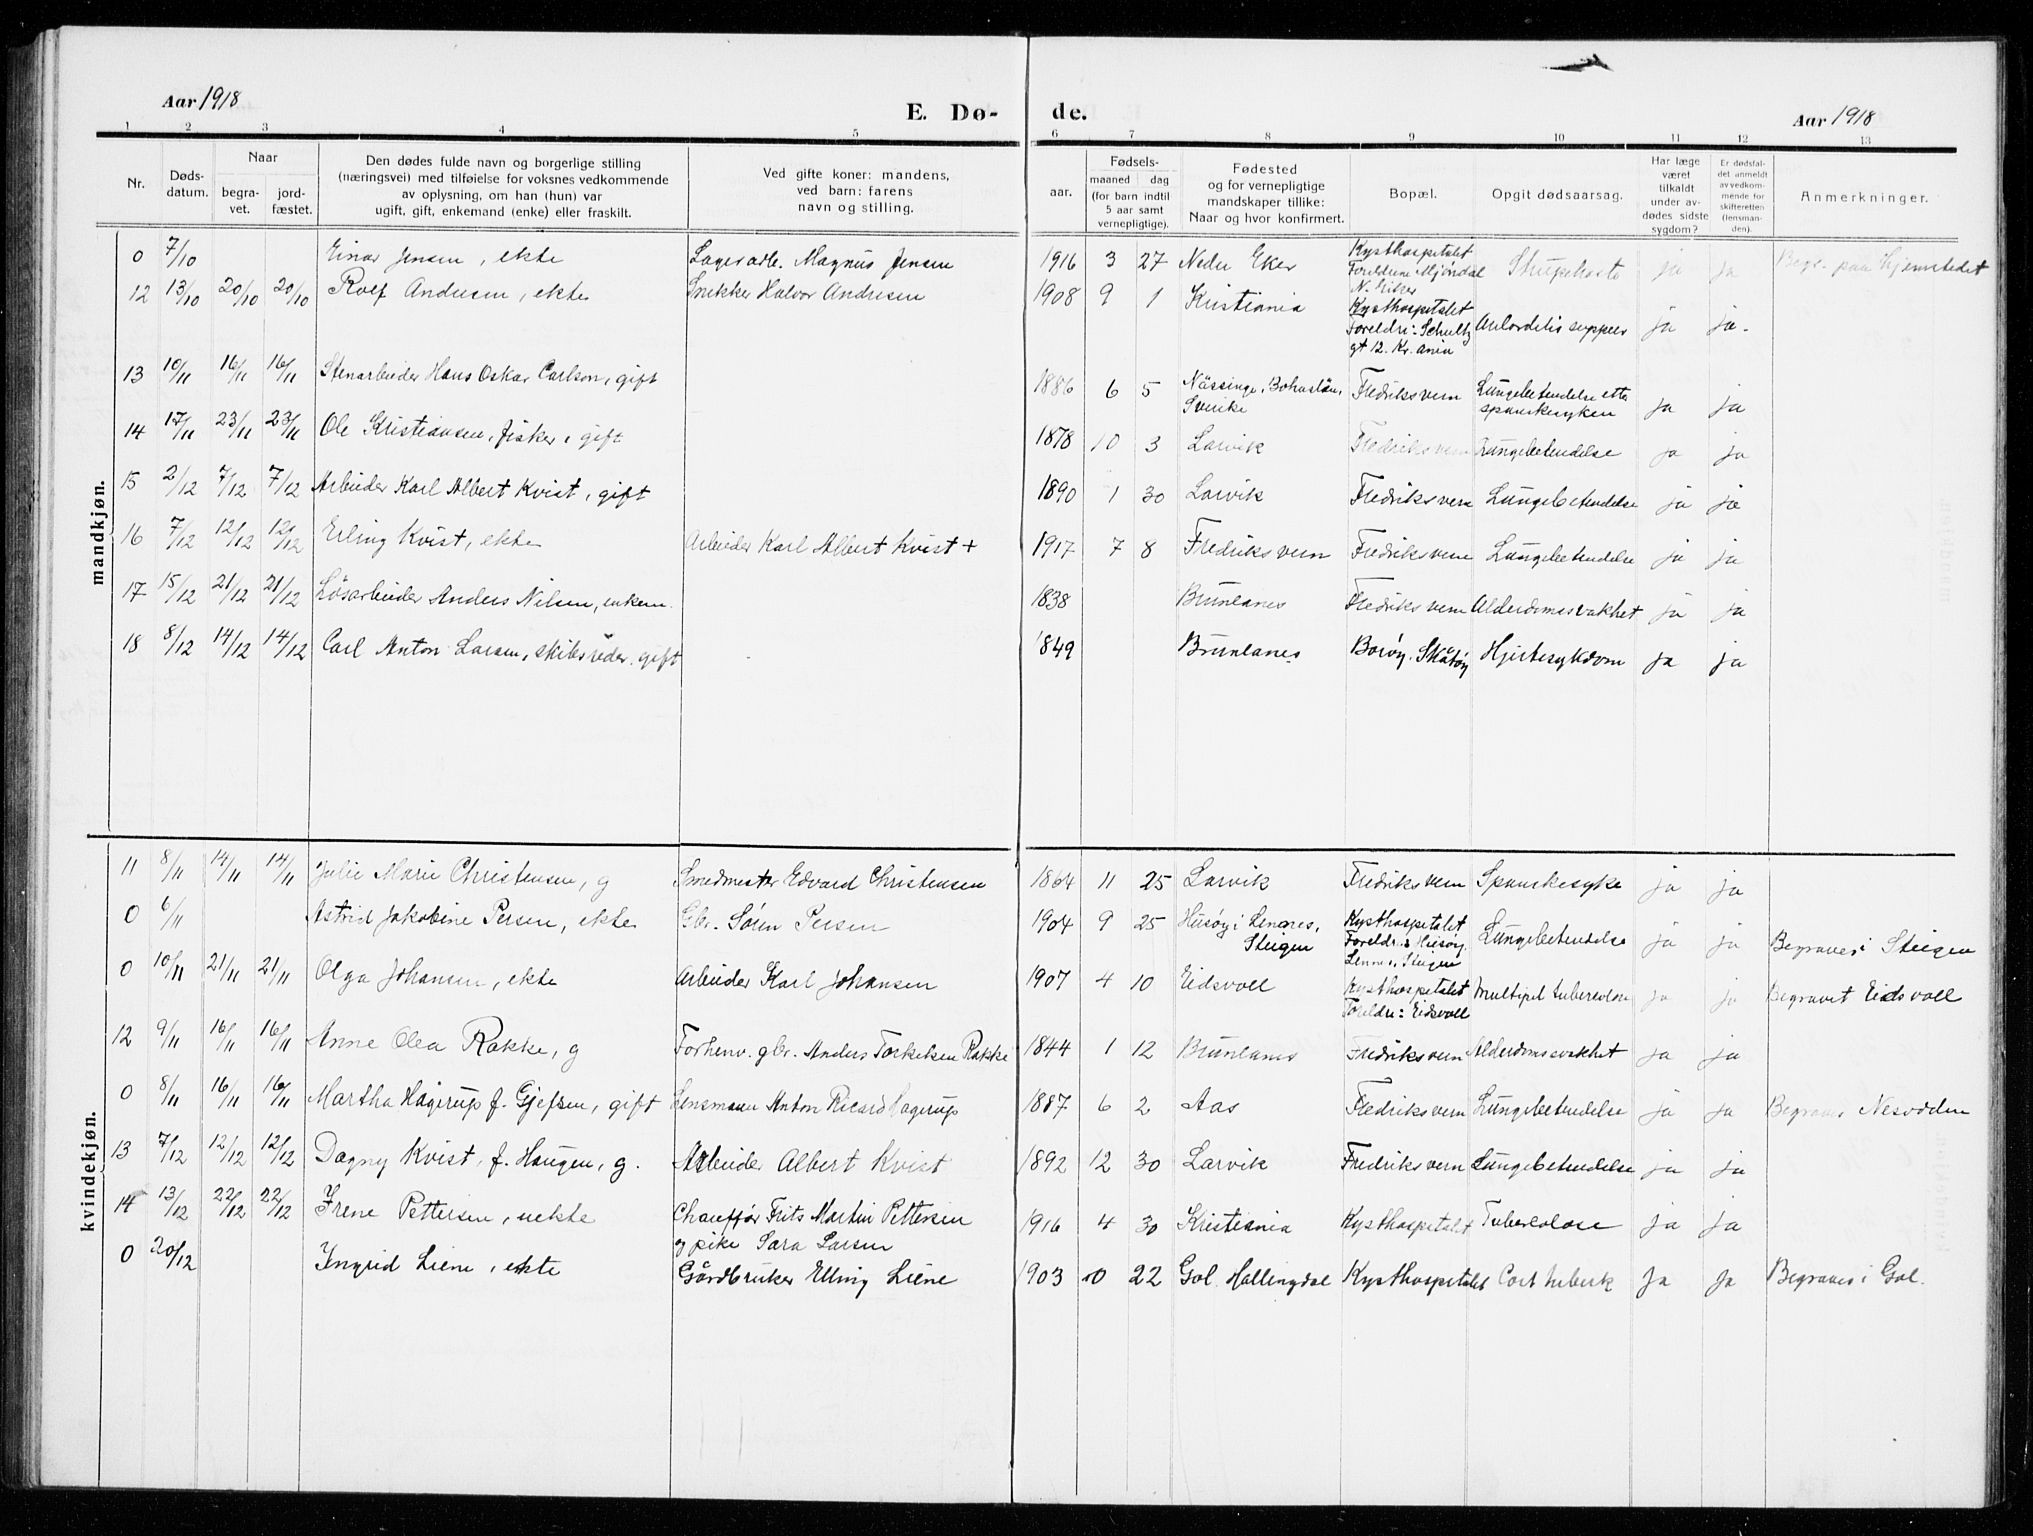 Aar 1918
E. Dø- de.
Aar 1918
1 2 3 4 5 6 7 8 9 10 11 12 13
Nr.
Døds-
datum.
Naar
begra-
vet.
jord-
fæstet.
Den dødes fulde navn og borgerlige stilling
(næringsvei) med tilføielse for voksnes vedkommende
av oplysning, om han (hun) var
ugift, gift, enkemand (enke) eller fraskilt.
Ved gifte koner: mandens,
ved barn: farens
navn og stilling.
Fødsels-
aar.
maaned dag
(for barn indtil
5 aar samt
vernepligtige).
Fødested
og for vernepligtige
mandskaper tillike:
Naar og hvor konfirmert.
Bopæl.
Opgit dødsaarsag.
Har læge
været
tilkaldt
under av-
dødes sidste
sygdom?
Er dødsfal-
det anmeldt
av vedkom-
mende for
skifteretten
(lensman-
den).
Anmerkninger.
mandkjøn.
0 7/10 Einar Jensen, ekte Lagerarb. Magnus Jensen 1916 3 27 Nedre Eker Kysthospitalet
Foreldrene Mjöndal
N. Eiker
Strupehoste ja ja Begr. paa hjemstedet
12 13/10 20/10 20/10 Rolf Andresen, ekte Snekker Halvor Andresen 1908 9 1 Kristiania Kysthospitalet
Foreldre: Schultz
gt 12. Kr.ania
ja ja.
13 10/11 16/11 16/11 Stenarbeider Hans Oskar Carlson, gift 1886 6 5 Nässinge, Bohuslän,
Sverike
Fredriksvern Lungebetendelse etter
spanskesyken ja ja
14 17/11 23/11 23/11 Ole Kristiansen, fisker, gift 1878 10 3 Larvik Fredriksvern Lungebetendelse ja ja
15 2/12 7/12 7/12 Arbeider Karl Albert Kvist, gift 1890 1 30 Larvik Fredriksvern Lungebetendelse ja ja
16 7/12 12/12 12/12 Erling Kvist, ekte Arbeider Karl Albert Kvist + 1917 7 8 Fredriksvern Fredriksvern Lungebetendelse ja ja
17 15/12 21/12 21/12 Løsarbeider Anders Nilsen, enkem. 1838 Brunlanes Fredriksvern Alderdomssvakhet ja ja
18 8/12 14/12 14/12 Carl Anton Larsen, skibsreder, gift 1849 Brunlanes Borøy, Skåtøy Hjertesykdom ja ja
kvindekjøn.
11 8/11 14/11 14/11 Julie Marie Christensen, g Smedmester Edvard Christensen 1864 11 25 Larvik Fredriksvern Spanskesyke ja ja
0 6/11 Astrid Jakobine Persen, ekte Gbr. Sören Persen 1904 9 25 Husøy i Lennes,
Steigen
Kysthospitalet
Foreldre: Husöy,
Lennes, Steigen
Lungebetendelse ja ja Begraves i Steigen
0 10/11 21/11 21/11 Olga Johansen, ekte Arbeider Karl Johansen 1907 4 10 Eidsvoll Kysthospitalet
Foreldre: Eidsvoll
Multipel tuberculose ja ja Begravet Eidsvoll
12 9/11 16/11 16/11 Anne Olea Rakke, g Forhenv. gbr. Anders Torkelsen Rakke 1844 1 12 Brunlanes Fredriksvern Alderdomssvakhet ja ja
0 8/11 16/11 16/11 Martha Hagerup f. Gjefsen, gift Lensmann Anton Ricard Hagerup 1887 6 2 Aas Fredriksvern Lungebetendelse ja ja Begraves Nesodden
13 7/12 12/12 12/12 Dagny Kvist, f. Haugen, g. Arbeider Albert Kvist 1892 12 30 Larvik Fredriksvern Lungebetendelse ja ja
14 13/12 22/12 22/12 Irene Pettersen, uekte Chauffør Frits Martin Pettersen
og pike Sara Larsen
1916 4 30 Kristiania Kysthospitalet Tuberculose ja ja
0 20/12 Ingrid Liene, ekte Gårdbruker Elling Liene 1903 10 22 Gol. Hallingdal Kysthospitalet ja ja Begraves i Gol.